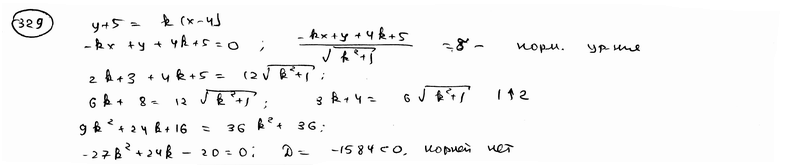 329 y+5 = k(x-4)
-kx + y + 4k+5=0 ; (-kx+y+4k+5)/√(k²+1) = δ - норм. ур-ние
2k+3+4k+5= 12√(k²+1) ;
6k+8= 12 √(k²+1) ; 3k+4= 6√(k²+1) 1↑2
9k²+24k+16 = 36k²+36;
-27k²+24k-20=0; D= -1584<0, корней нет